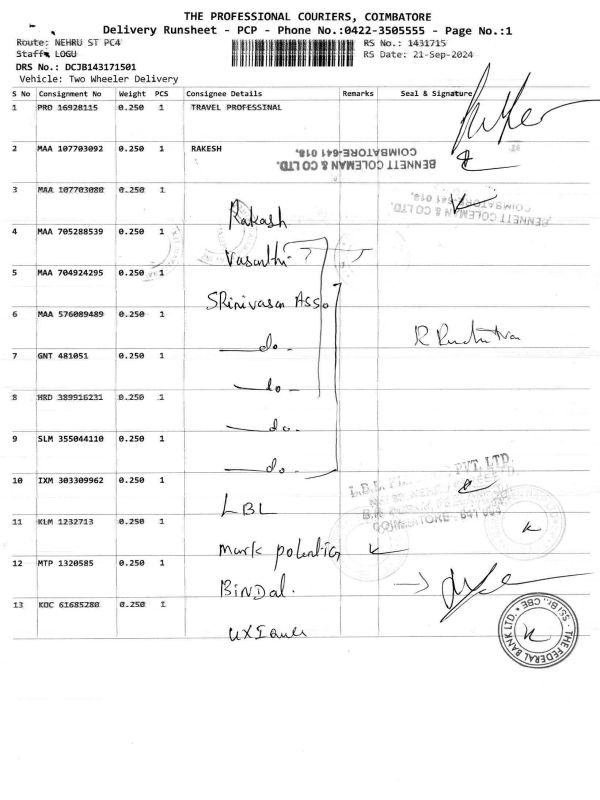 THE PROFESSIONAL COURIERS, COIMBATORE
Delivery Runsheet - PCP - Phone No.:0422-3505555 - Page No.:1
Route: NEHRU ST PC4 RS No.: 1431715
Staff: LOGU RS Date: 21-Sep-2024
DRS No.: DCJB143171501
Vehicle: Two Wheeler Delivery
S No Consignment No Weight PCS Consignee Details Remarks Seal & Signature
1 PRO 16928115 0.250 1 TRAVEL PROFESSINAL
2 MAA 107703092 0.250 1 RAKESH
BENNETT COLEMAN & CO LTD.
COIMBATORE-641 018.
3 MAA 107703080 0.250 1 Rakash
BENNETT COLEMAN & CO LTD.
COIMBATORE-641 018.
4 MAA 705288539 0.250 1 Vasanthi
5 MAA 704924295 0.250 1 SRinivasan Asso
6 MAA 576089489 0.250 1 do -
7 GNT 481051 0.250 1 do -
8 HRD 389916231 0.250 1 do -
9 SLM 355044110 0.250 1 do -
10 IXM 303309962 0.250 1 LBL
PVT. LTD.
COIMBATORE - 641
11 KLM 1232713 0.250 1 mark
12 MTP 1320585 0.250 1 BiNDal.
13 KOC 61685280 0.250 1
THE FEDERAL BANK LTD. * SSI BR. CBE *